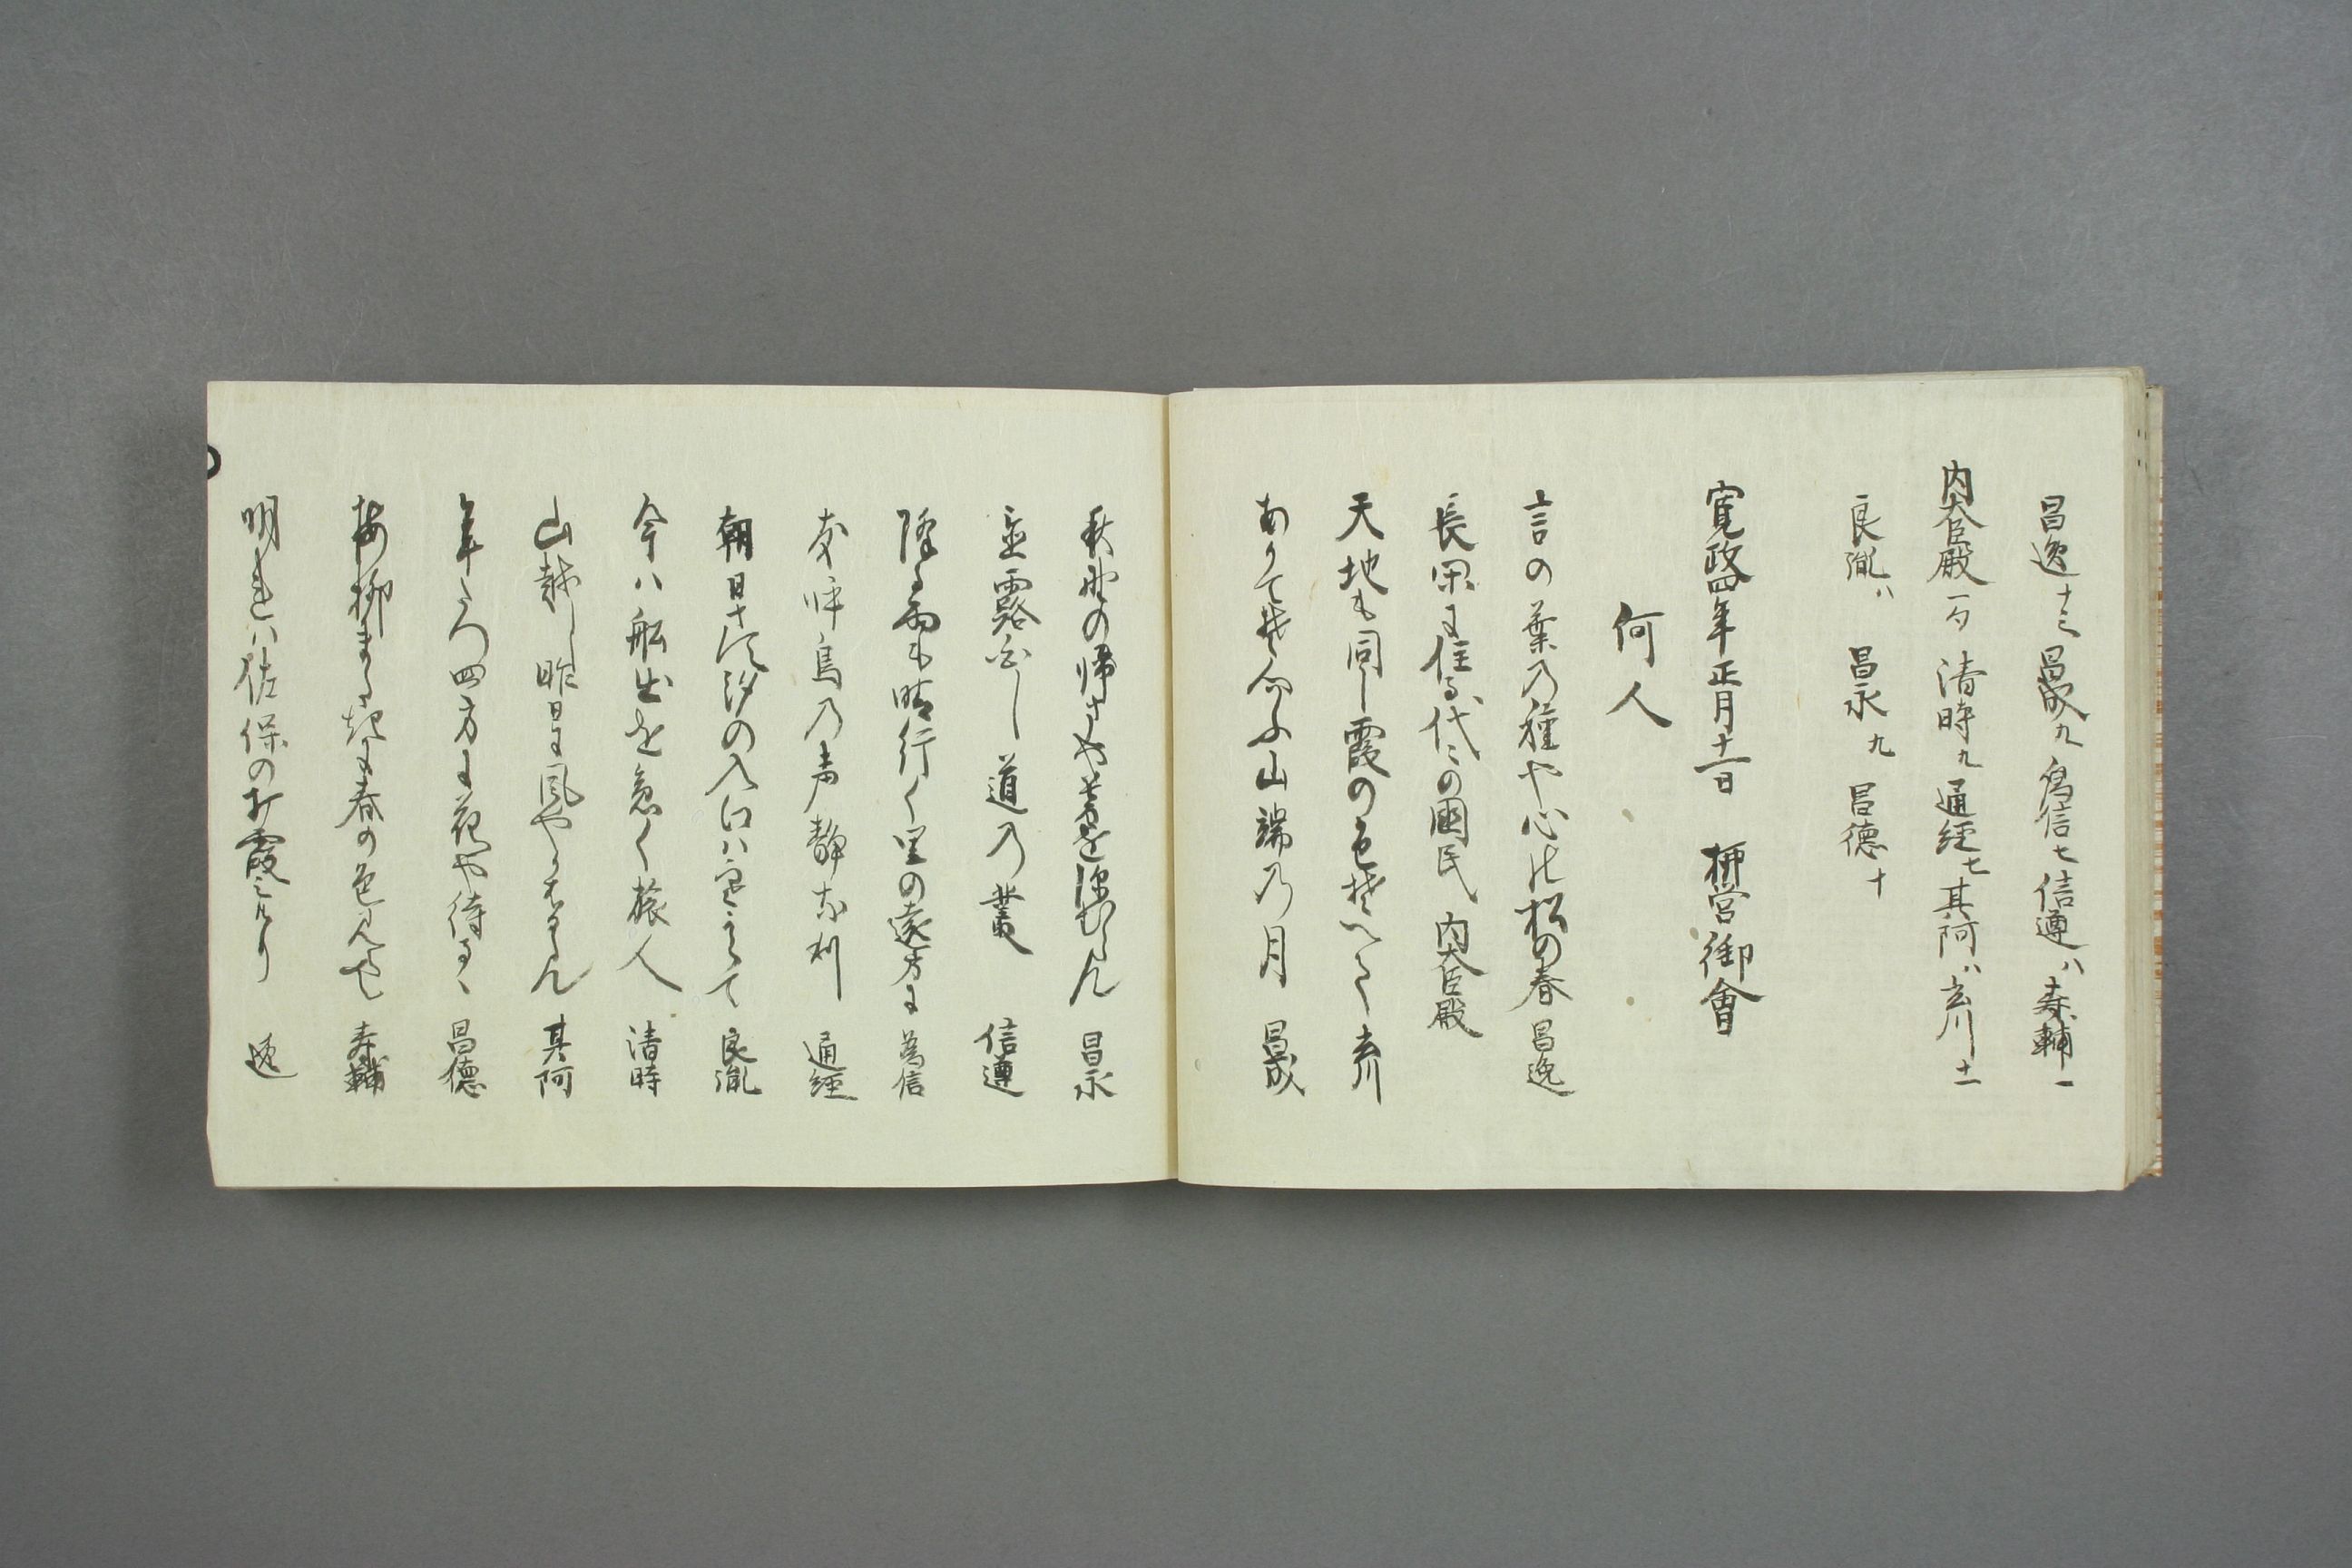 昌逸十三 昌成九 為信七 信遵八 寿輔一
内大臣殿一句 清時九 通経七 其阿八 玄川十一
良胤八 昌永九 昌徳十
寛政四年正月十一日 柳営御會
何人
言の葉乃種や心の松の春 昌逸
長閑に住る代々の國民 内大臣殿
天地も同し霞の色そへて 玄川
ありてそ向ふ山端乃月 昌成
秋野の帰さや暮を深むらん 昌永
並露白し道乃叢 信遵
降る雨も晴行く里の遠方に 為信
友呼鳥乃声静なり 通経
朝日さす汐の入江は 良胤
今ハ船出を急く旅人 清時
山越し昨日に風やかはるらん 其阿
年こへ四方に花や待るゝ 昌徳
梅柳まつ花に春の色見せ 寿輔
明れハ佐保の打霞みたり 逸